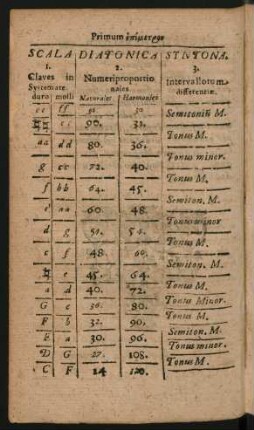 Primum ἐπίμετρον
SCALA DIATONICA SYNTONA.
1. 2. 3.
Claves in Numeri proportionales Intervallorum
Systemate differentiæ.
duro molli Naturales Harmonici
cc ff
Semitoniũ M.
♮♮ 90. 32.
Tonus M.
aa dd 80. 36.
Tonus minor.
g cc 72. 40.
Tonus M.
f bb 64. 45.
Semiton. M.
e aa 60. 48.
Tonus minor
d g
Tonus M.
c f 48. 60.
Semiton. M.
♮ e 45. 64.
Tonus M.
a d 40. 72.
Tonus Minor.
G c 36. 80.
Tonus M.
F b 32. 90.
Semiton. M.
E a 30. 96.
Tonus minor.
D G 27. 108.
Tonus M.
C F 24 120.